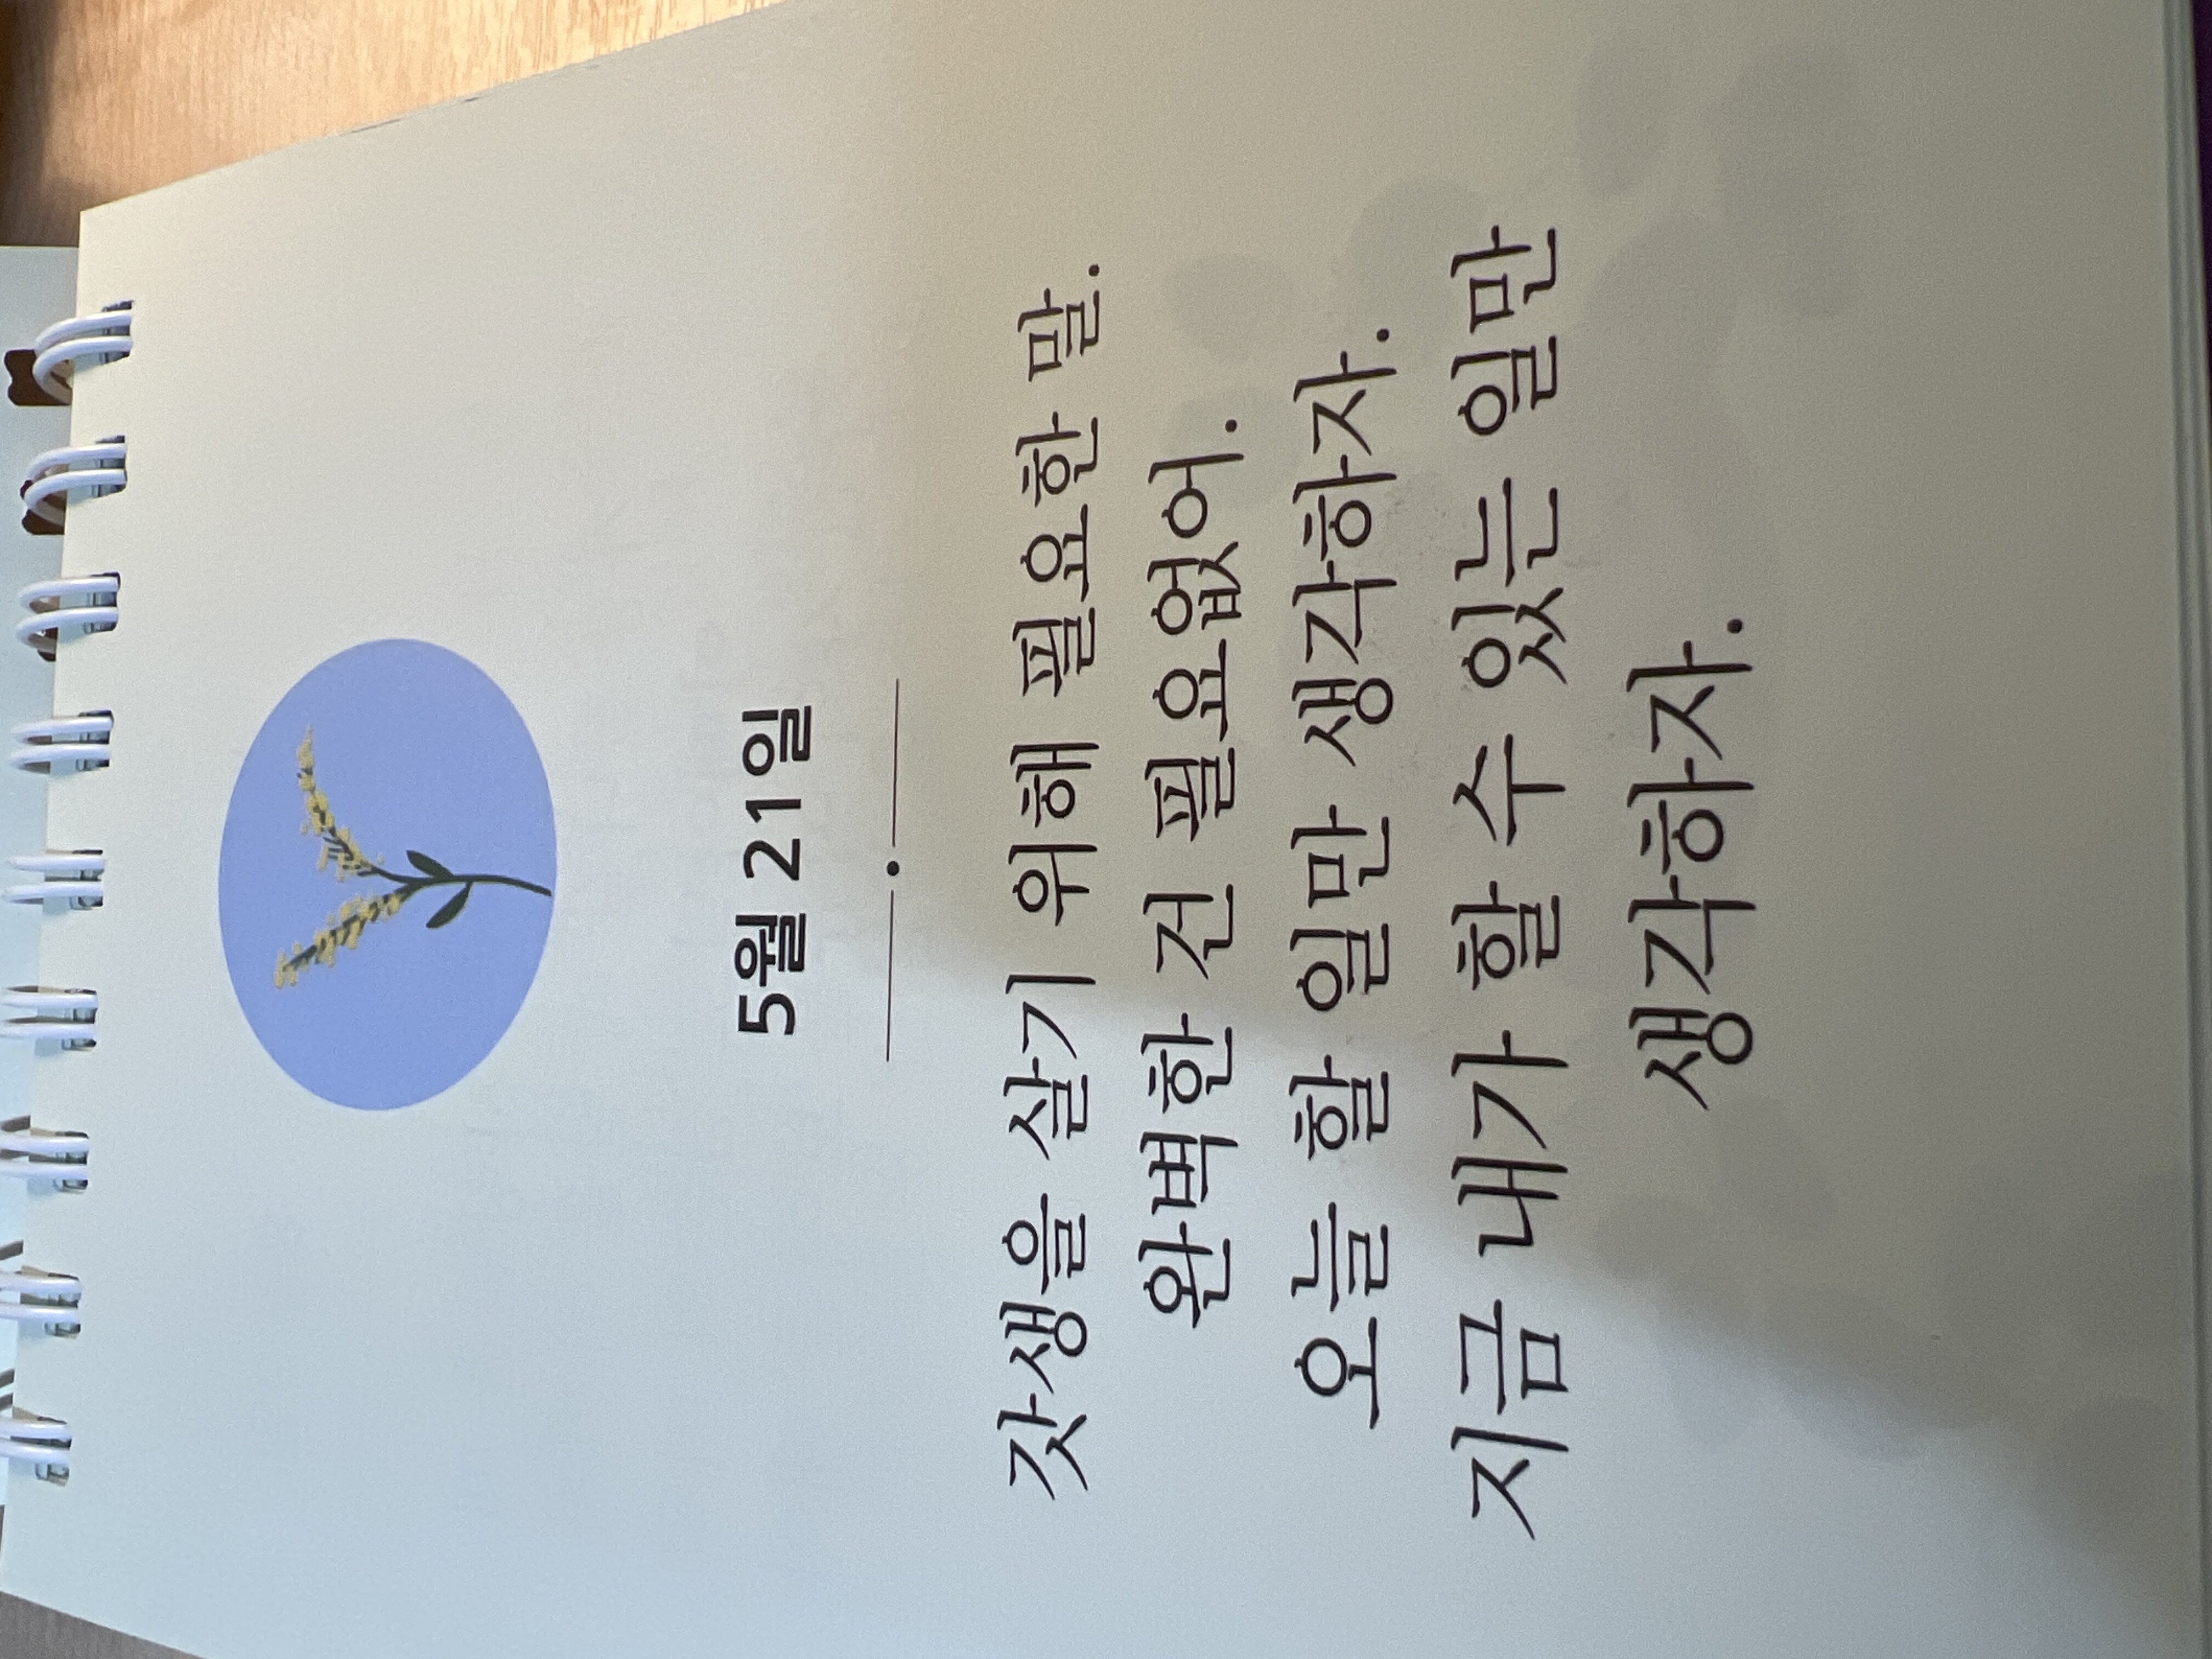 5월 21일
갓생을 살기 위해 필요한 말.
완벽한 건 필요없어.
오늘 할 일만 생각하자.
지금 내가 할 수 있는 일만
생각하자.